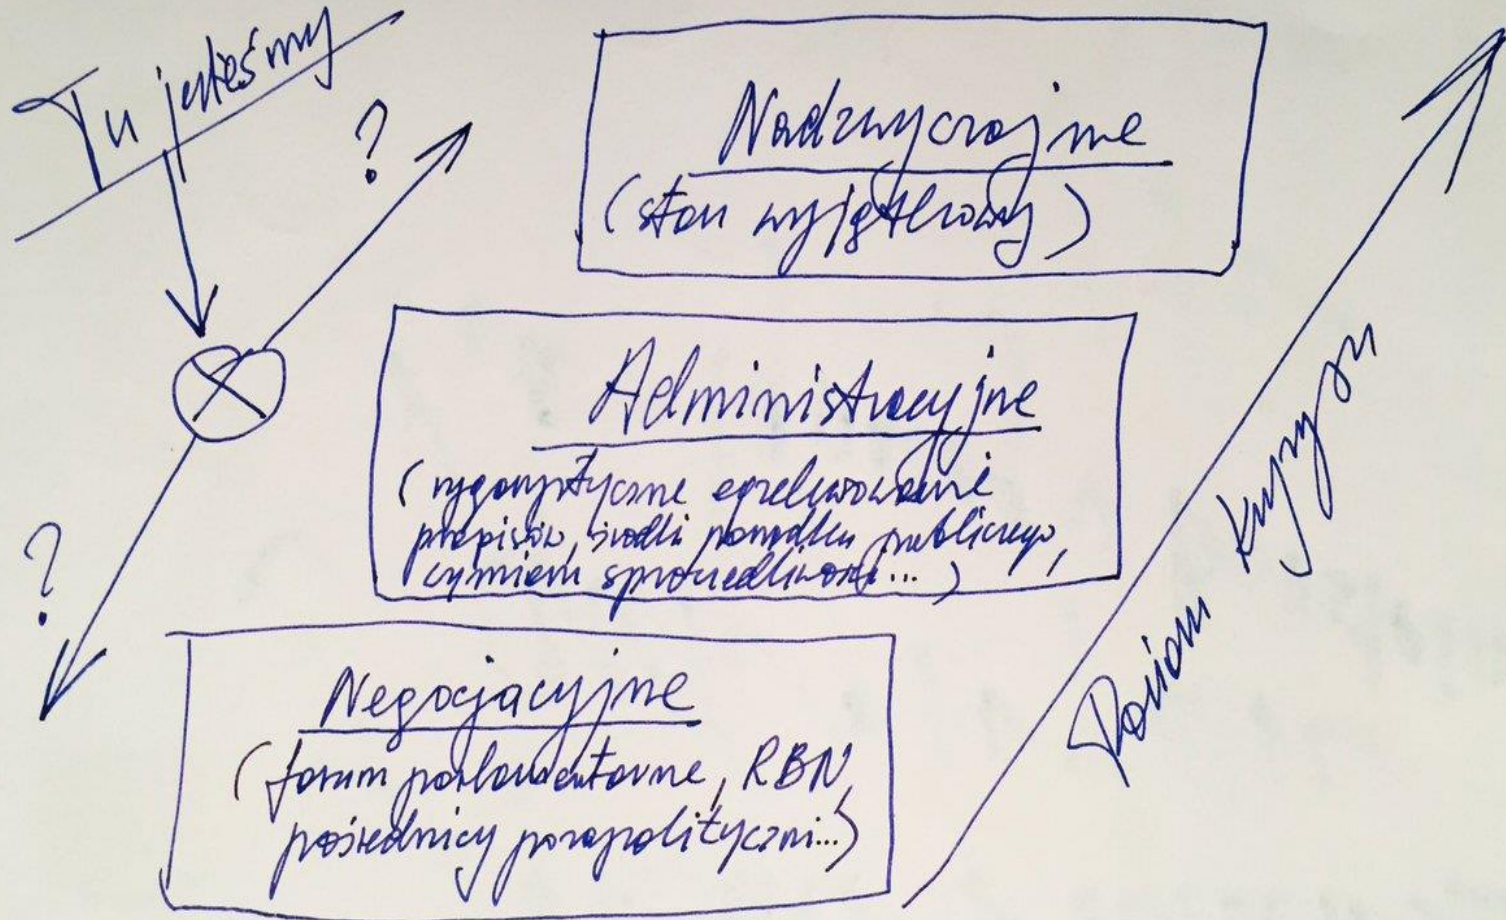 Tu jesteśmy
?
?
Nadzwyczajne
(stan wyjątkowy)
Administracyjne
(rygorystyczne egzekwowanie
przepisów, środki porządku publicznego,
wymiaru sprawiedliwości...)
Negocjacyjne
(forum parlamentarne, RBN,
pośrednicy parapolityczni...)
Poziom kryzysu